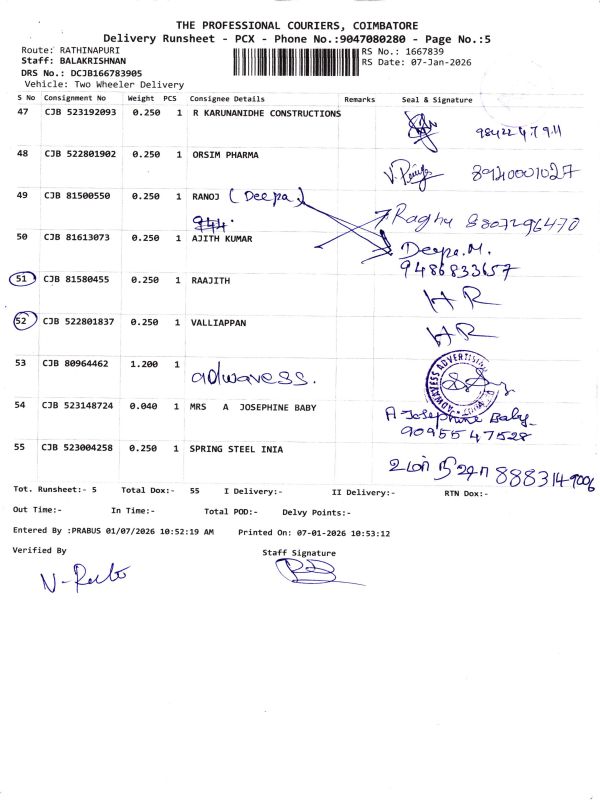 THE PROFESSIONAL COURIERS, COIMBATORE
Delivery Runsheet - PCX - Phone No.:9047080280 - Page No.:5
Route: RATHINAPURI
Staff: BALAKRISHNAN
DRS No.: DCJB166783905
Vehicle: Two Wheeler Delivery
RS No.: 1667839
RS Date: 07-Jan-2026
S No Consignment No Weight PCS Consignee Details Remarks Seal & Signature
47 CJB 523192093 0.250 1 R KARUNANIDHE CONSTRUCTIONS
48 CJB 522801902 0.250 1 ORSIM PHARMA 8940001027
49 CJB 81500550 0.250 1 RANOJ (Deepa)
Raghu 8807296470
50 CJB 81613073 0.250 1 AJITH KUMAR Deepa.M.
9486833657
51 CJB 81580455 0.250 1 RAAJITH HR
52 CJB 522801837 0.250 1 VALLIAPPAN HR
53 CJB 80964462 1.200 1 adwavess.
ADWAVESS ADVERTISING
54 CJB 523148724 0.040 1 MRS A JOSEPHINE BABY A Josephine Baby
9095547528
55 CJB 523004258 0.250 1 SPRING STEEL INIA
Tot. Runsheet:- 5 Total Dox:- 55 I Delivery:- II Delivery:- RTN Dox:-
Out Time:- In Time:- Total POD:- Delvy Points:-
Entered By :PRABUS 01/07/2026 10:52:19 AM Printed On: 07-01-2026 10:53:12
Verified By Staff Signature